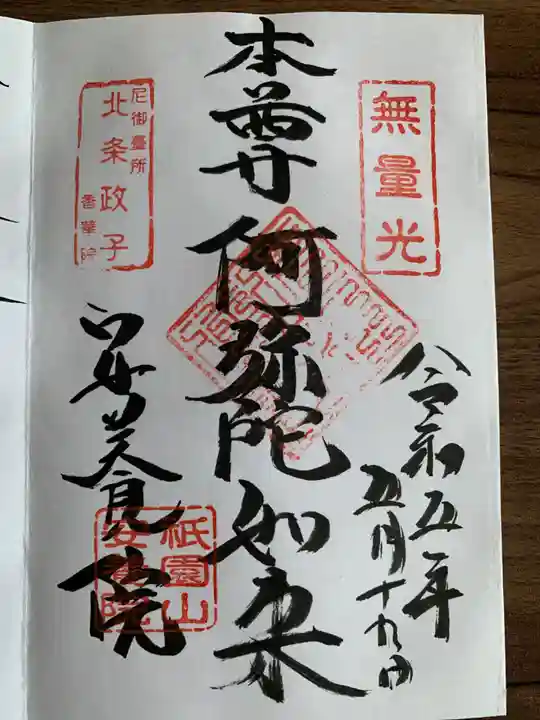 無量光
令和五年
五月十九日
本尊阿弥陀如来
尼御臺所
北条政子
香華院
安養院
祇園山
安養院